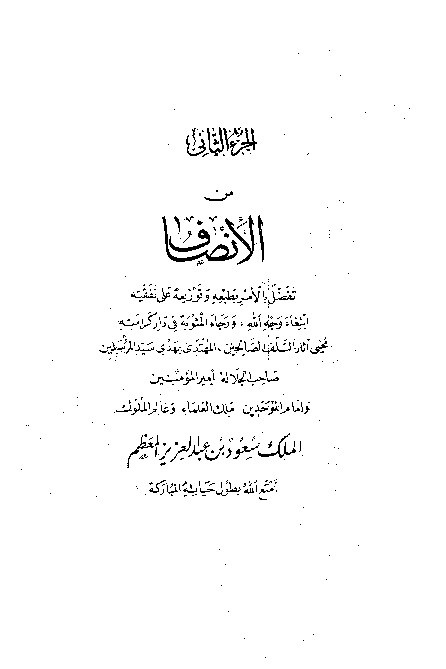 الجزء الثاني
من
الإنصاف
تفضل بالأمر بطبعه وتوزيعه على نفقته
ابتغاء وجه الله ، ورجاء المثوبة في دار كرامته
محيي آثار السلف الصالحين ، المهتدي بهدي سيد المرسلين
صاحب الجلالة أمير المؤمنين
وإمام الموحدين ملك العلماء وعالم الملوك
الملك سعود بن عبد العزيز المعظم
أمتع الله بطول حياته المباركة